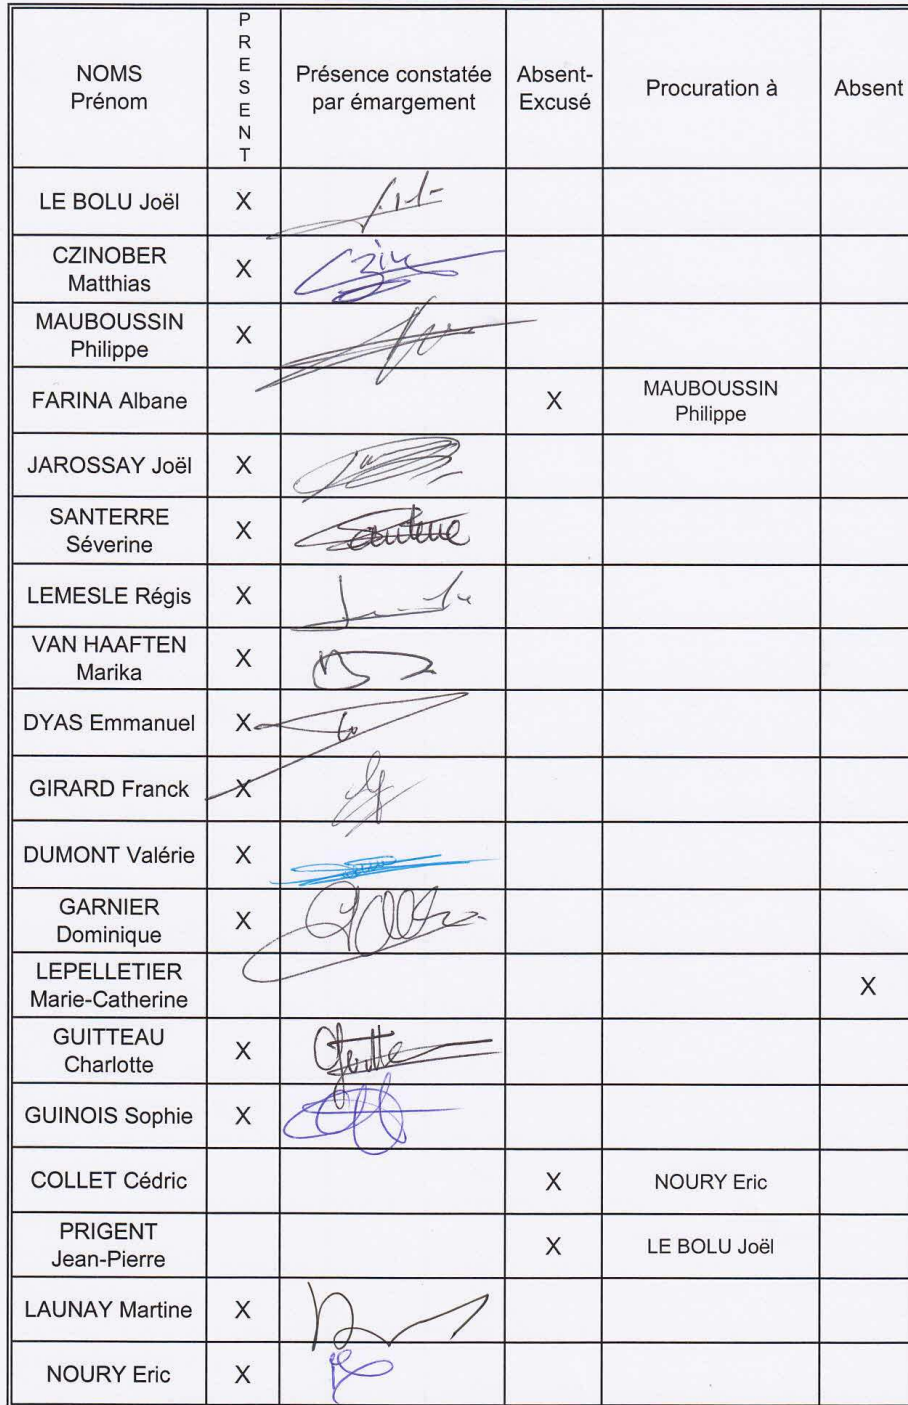 NOMS
Prénom
P
R
E
S
E
N
T
Présence constatée
par émargement
Absent-
Excusé
Procuration à
Absent
LE BOLU Joël
X
CZINOBER
Matthias
X
MAUBOUSSIN
Philippe
X
FARINA Albane
X
MAUBOUSSIN
Philippe
JAROSSAY Joël
X
SANTERRE
Séverine
X
LEMESLE Régis
X
VAN HAAFTEN
Marika
X
DYAS Emmanuel
X
GIRARD Franck
X
DUMONT Valérie
X
GARNIER
Dominique
X
LEPELLETIER
Marie-Catherine
X
GUITTEAU
Charlotte
X
GUINOIS Sophie
X
COLLET Cédric
X
NOURY Eric
PRIGENT
Jean-Pierre
X
LE BOLU Joël
LAUNAY Martine
X
NOURY Eric
X